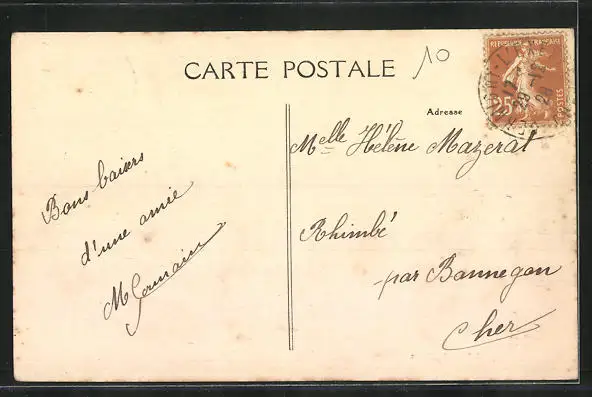 10
CARTE POSTALE
REPUBLIQUE FRANÇAISE
25
POSTES
Adresse
Melle Hélène Mazerat
Rhimbé
par Bannegon
Cher
Bons baisers
d'une amie
M Germain